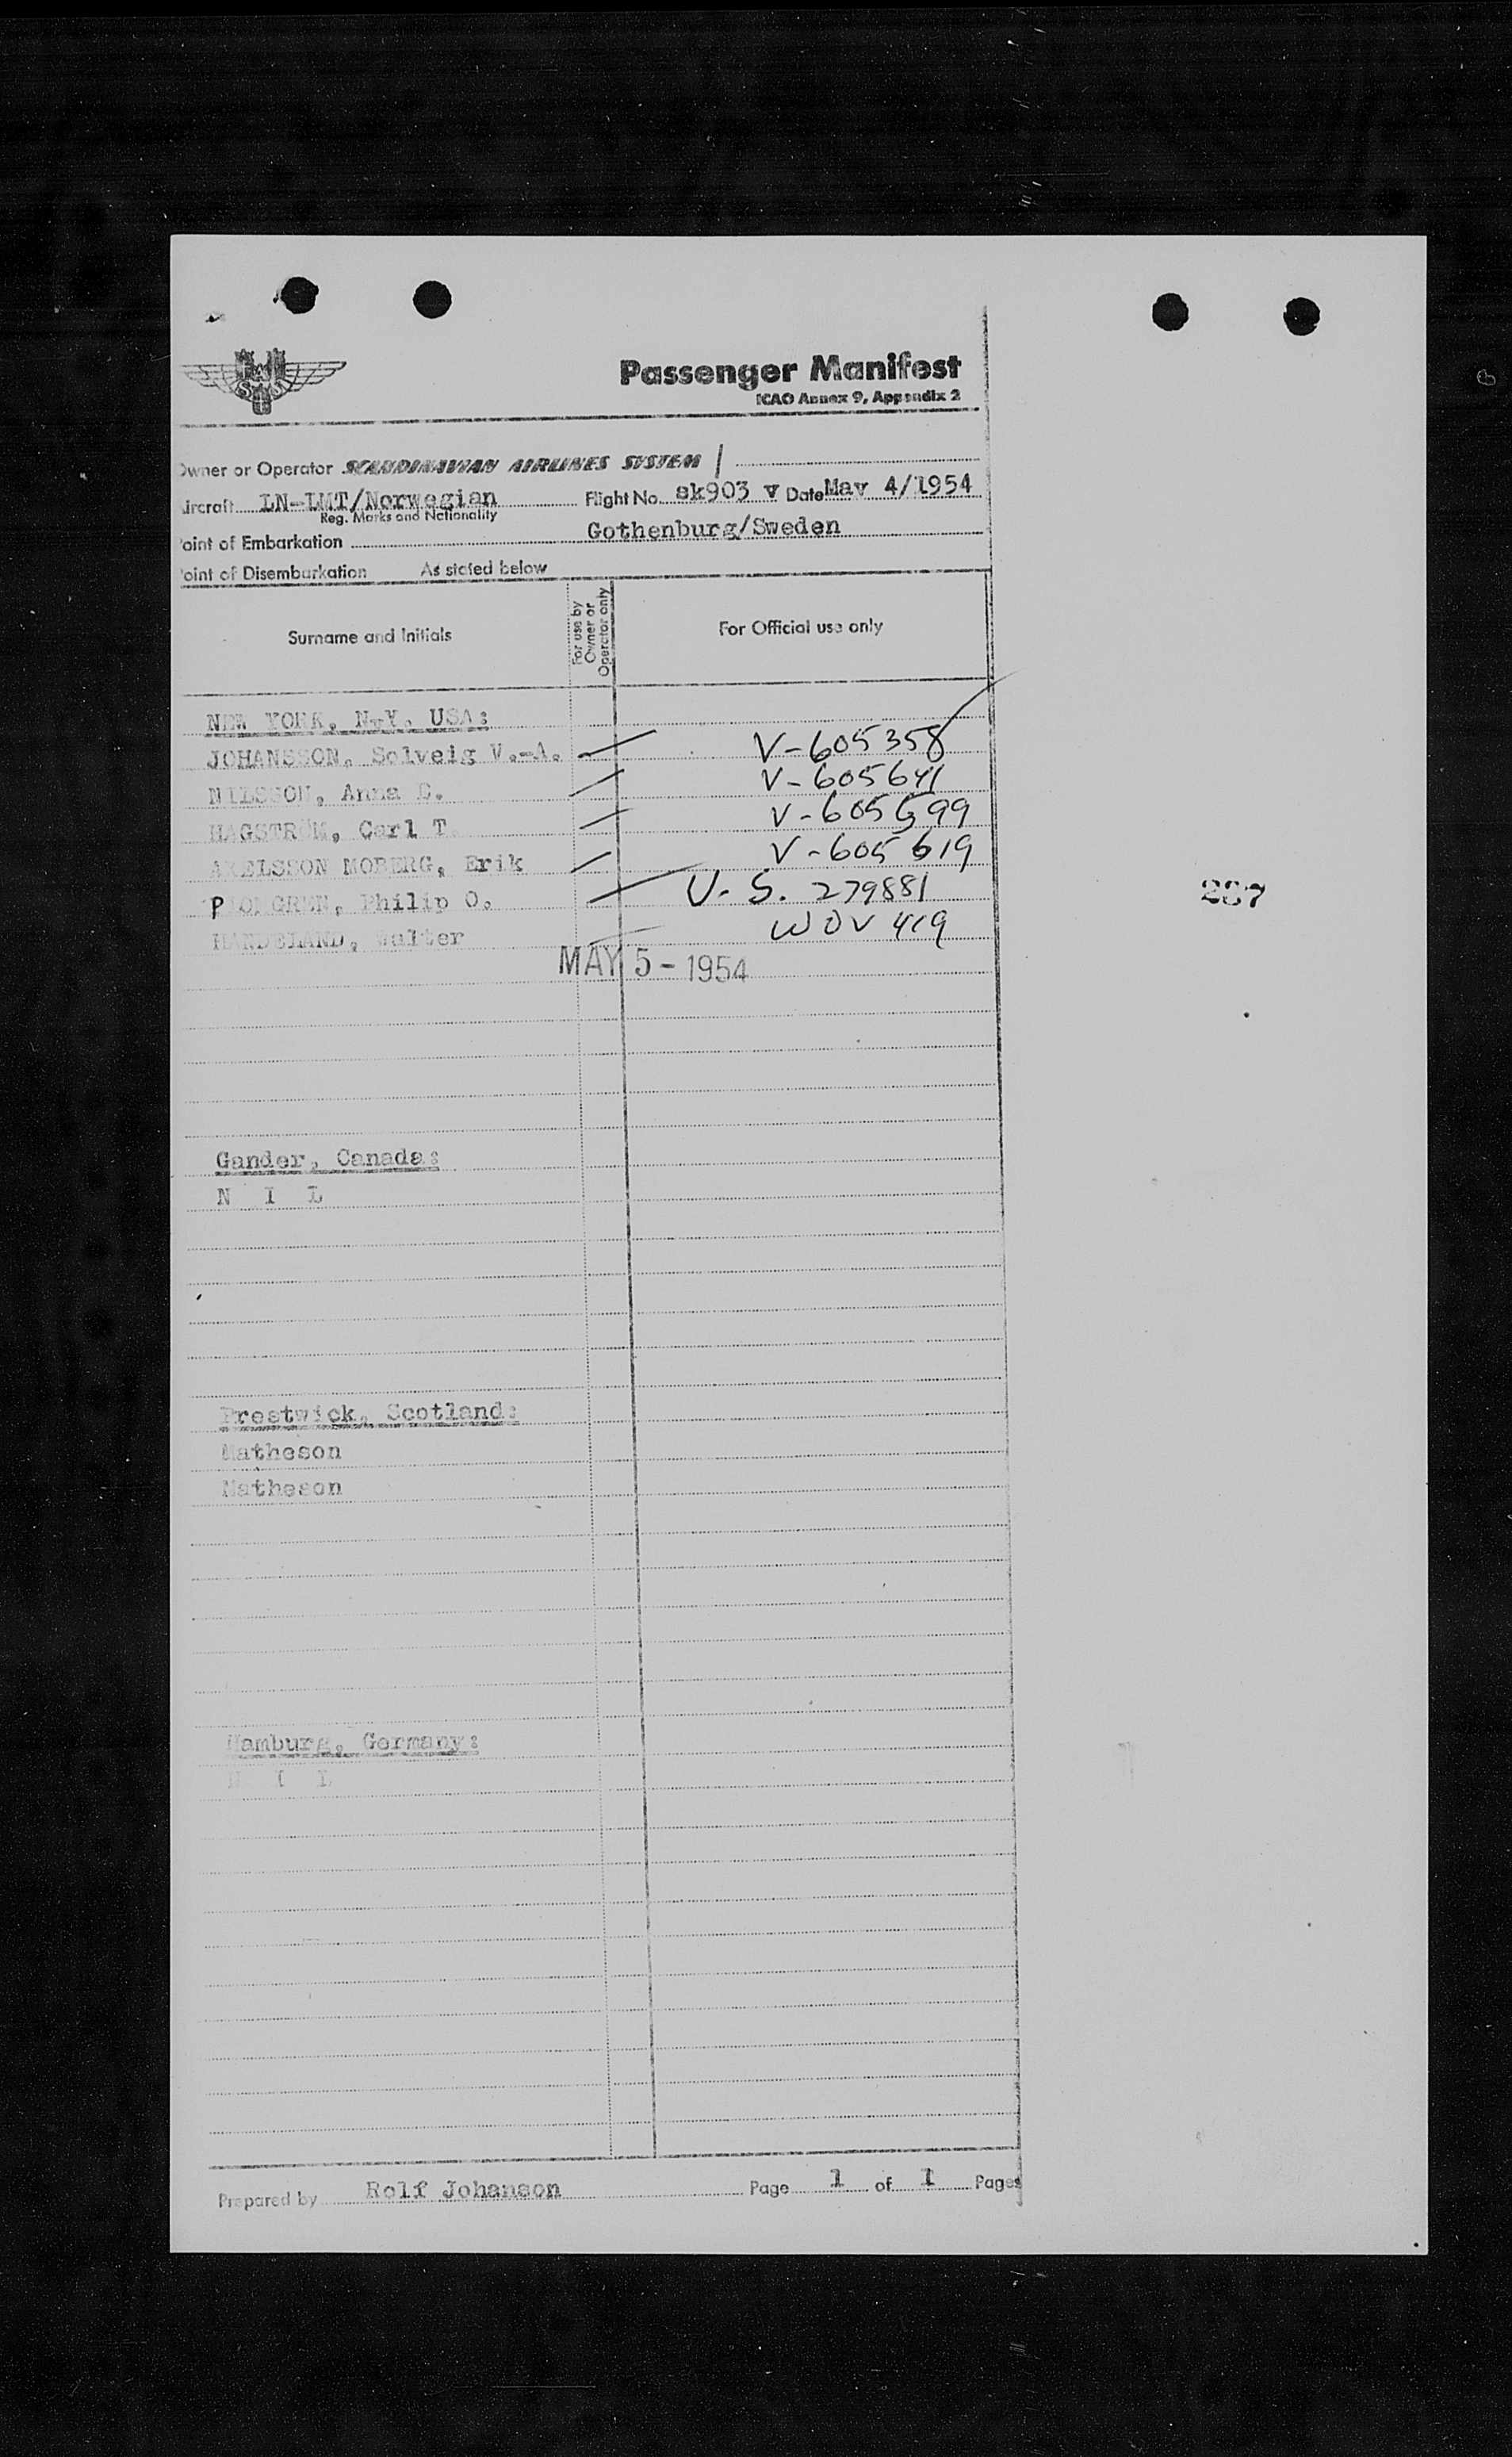 SAS
Passenger Manifest
ICAO Annex 9, Appendix 2
Owner or Operator SCANDINAVIAN AIRLINES SYSTEM
Aircraft LN-LMT/Norwegian Flight No. sk903 v Date May 4/1954
Reg. Marks and Nationality
Point of Embarkation Gothenburg/Sweden
Point of Disembarkation As stated below
Surname and Initials
For use by Owner or Operator only
For Official use only
NEW YORK, N.Y. USA:
JOHANSSON, Solveig V.-A. V-605358
NILSSON, Anna E. V-605641
HAGSTRÖM, Carl T. V-605599
AXELSSON MOBERG, Erik V-605619
Philip O. U.S. 279881
HANDELAND, Walter WOV 419
MAY 5 - 1954
287
Gander, Canada:
N I L
Prestwick, Scotland:
Matheson
Matheson
Hamburg, Germany:
N I L
Prepared by Rolf Johanson Page 1 of 1 Pages